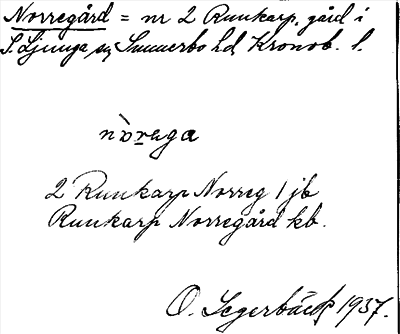 Norregård = nr 2 Runkarp, gård i
S. Ljunga sn, Sunnerbo hd, Kronob. l.
nòrega
2 Runkarp Norreg 1 jb
Runkarp Norregård kb.
O. Segerbäck 1937.